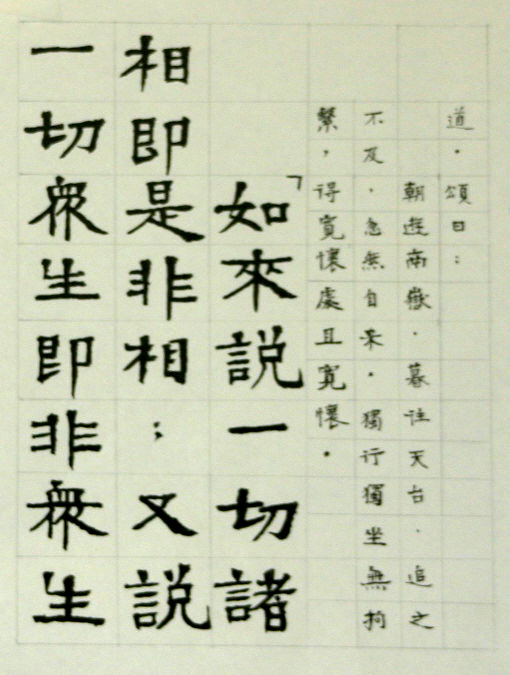 道。頌曰:
朝遊南嶽。暮往天台。追之
不及。忽無自来。獨行獨坐無拘
繫,得寬懷處且寬懷。
「如來説一切諸
相即是非相;又説
一切衆生即非衆生